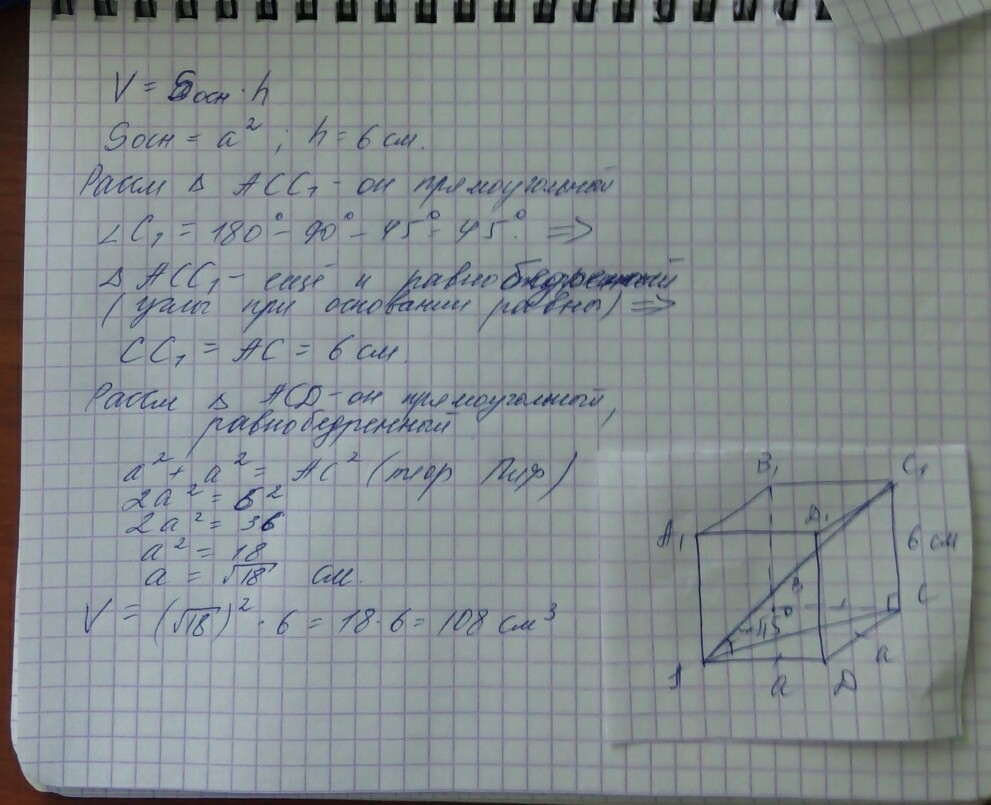 V = Sосн · h
Sосн = a² ; h = 6 см.
Рассм △ ACC₁ - он прямоугольный
∠C₁ = 180° - 90° - 45° = 45°. =>
△ ACC₁ - ещё и равнобедренный
(углы при основании равны) =>
CC₁ = AC = 6 см.
Рассм △ ACD - он прямоугольный,
равнобедренный
a² + a² = AC² (теор Пиф)
2a² = 6²
2a² = 36
a² = 18
a = √18 см.
V = (√18)² · 6 = 18 · 6 = 108 см³
B₁ C₁
A₁ D₁
6 см
B
45° C
a
A a D